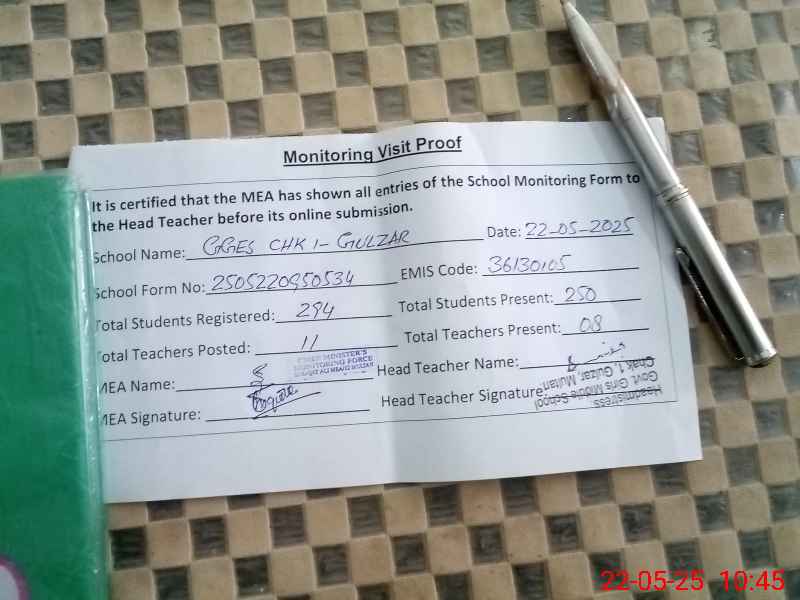 Monitoring Visit Proof
It is certified that the MEA has shown all entries of the School Monitoring Form to
the Head Teacher before its online submission.
School Name: GGES CHK 1- GULZAR Date: 22-05-2025
School Form No: 2505220950534 EMIS Code: 36130105
Total Students Registered: 294 Total Students Present: 250
Total Teachers Posted: 11 Total Teachers Present: 08
MEA Name: Head Teacher Name:
CHIEF MINISTER'S
MONITORING FORCE
MEA Signature: Head Teacher Signature:
Headmistress
Govt. Girls Middle School
Chak 1, Gulzar, Multan
22-05-25 10:45